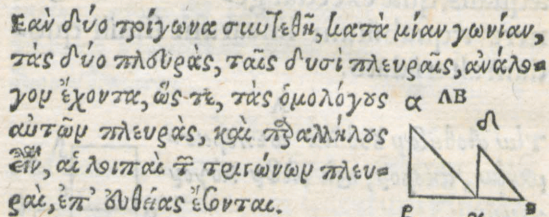 Εαὶν δύο τρίγωνα σωυτεθῆ, κατὰ μίαν γωνίαν,
τὰς δύο πλευρὰς, ταῖς δυσὶ πλευραῖς, ἀνάλο-
γον ἔχοντα, ὥς τε, τὰς ὁμολόγους α ΛΒ
αὐτῶν πλευρὰς, καὶ παραλλήλους δ
εἶναι, αἱ λοιπαὶ τῶν τριγώνων πλευ-
ραὶ, ἐπ' εὐθείας ἔσονται. β γ ε